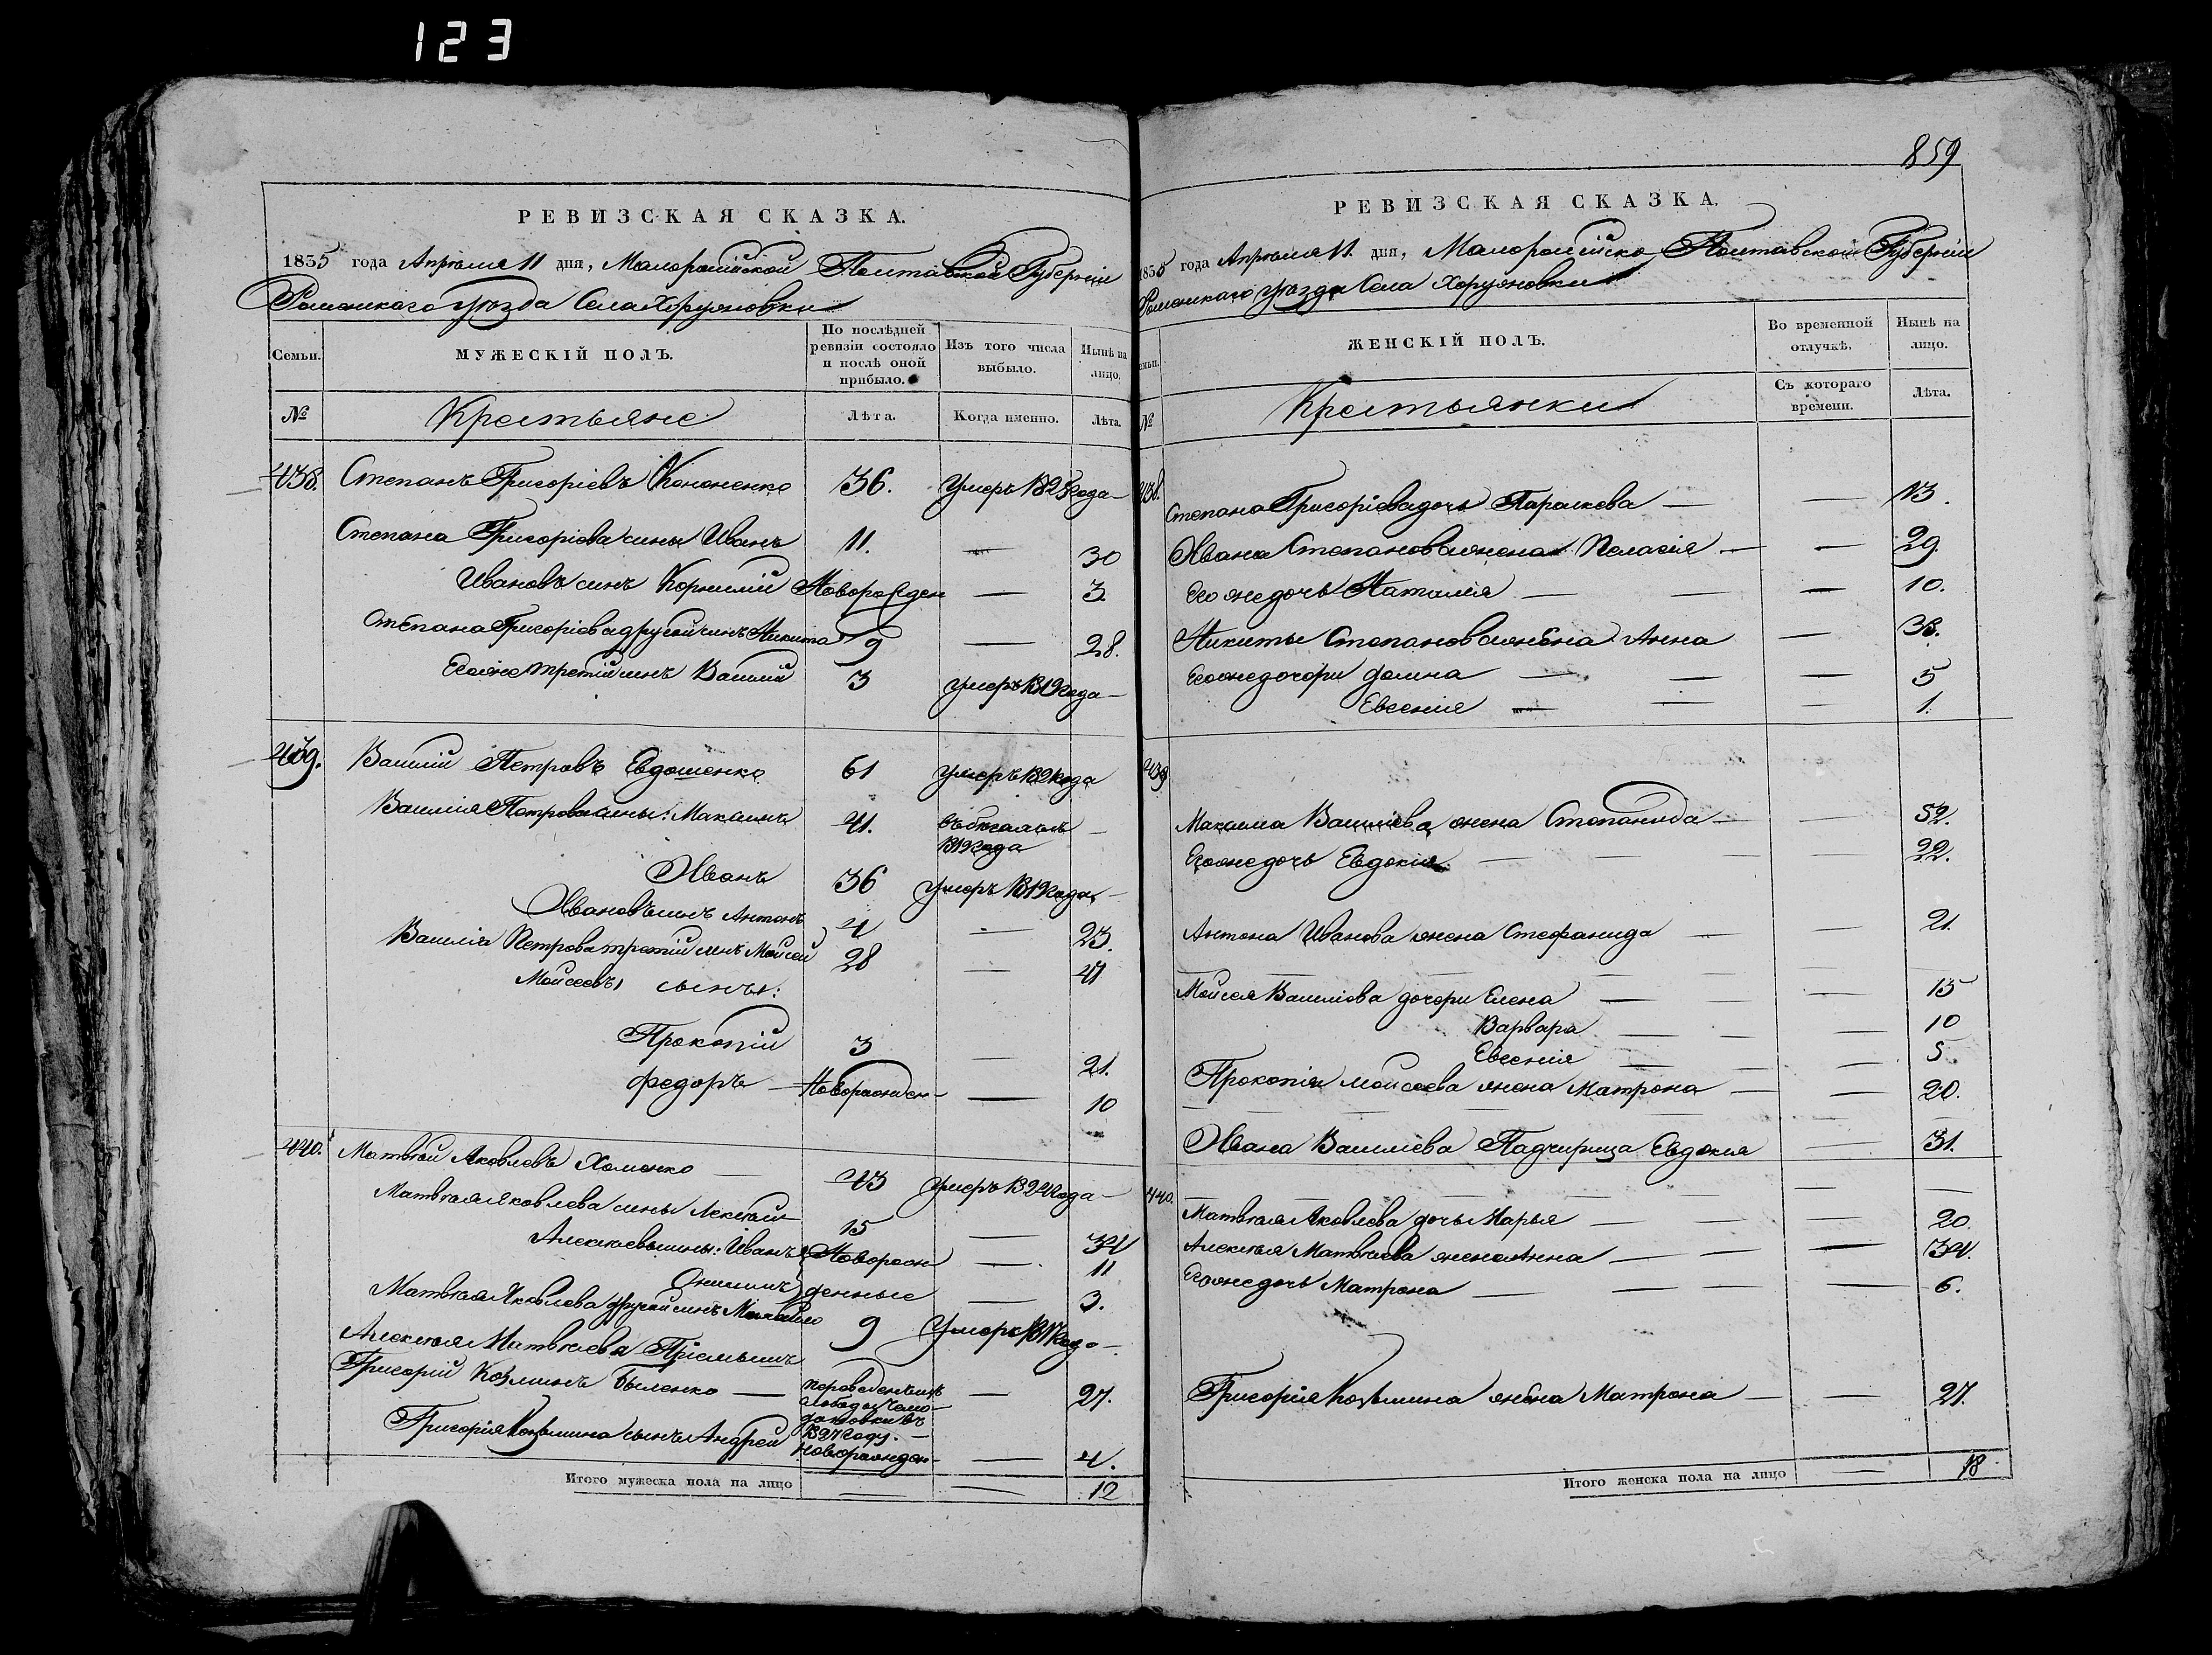 123
РЕВИЗСКАЯ СКАЗКА.
1835 года Апреля 11 дня, Малороссійской Полтавской Губерніи
Роменскаго уезда Села Хоружовки
Семьи.
МУЖЕСКІЙ ПОЛЪ.
По послѣдней ревизіи состояло и послѣ оной прибыло.
Изъ того числа выбыло.
Нынѣ на лицо.
№
Крестьяне
Лѣта.
Когда именно.
Лѣта.
438. Степанъ Григоріевъ Кононенко 36. умеръ 1825 года
Степана Григоріева сины Иванъ 11. — 30
Ивановъ синъ Корнилій Новорожден — 3.
Степана Григоріева другой синъ Никита 9 — 28.
Его же третій синъ Василій 3 умеръ 1819 года
439. Василій Петровъ Евдошенко 61 умеръ года
Василія Петрова сины: Максимъ 41. въ бегалъ
1819 года
Иванъ 36 умеръ 1819 года
Ивановъ синъ Антонъ 4 — 23.
Василія Петрова третій синъ Мойсей 28 — 47
Мойсеевы сынъ:
Прокопій 3 — 21.
Федоръ — Новорожден — 10
440. Матвей Яковлевъ Хоменко — 43 умеръ 1824 года
Матвея Яковлева сины Алексей 15 — 34
Алексеевы сины: Иванъ Новорож — 11
Онисимъ денные — 3.
Матвея Яковлева другой синъ Михайло 9 Умеръ 1817 года
Алексея Матвеева Пріемышъ
Григорій Козминъ Биленко — переведенъ изъ — 27.
слободы
въ
1827 году.
Григорія Козьмина сынъ Андрей новорожден — 4.
Итого мужеска пола на лицо — — 12
859
РЕВИЗСКАЯ СКАЗКА.
1835 года Апреля 11. дня, Малороссійско Полтавской Губерніи
Роменскаго уезда Села Хоружовки
Семьи.
ЖЕНСКІЙ ПОЛЪ.
Во временной отлучкѣ.
Нынѣ на лицо.
№
Крестьянки
Съ котораго времени.
Лѣта.
438. Степана Григоріева дочь Параскева — — 13.
Ивана Степанова жена Пелагія — — 29.
Его же дочь Наталія — — — 10.
Никиты Степанова жена Анна — 38.
Его же дочери Домна — — — 5
Евгенія — — — 1.
439
Максима Василіева жена Степанида — — 52.
Его же дочь Евдокія — — — 22.
Антона Иванова жена Стефанида — — 21.
Мойсея Василіова дочери Елена — — — 15
Варвара — — — 10
Евгенія — — — 5.
Прокопія Мойсеева жена Матрона — — 20.
Ивана Василіева Падчирица Евдокия — 31.
440. Матвея Яковлева дочь Марья — — — 20.
Алексея Матвеева жена Анна — — — 34.
Его же дочь Матрона — — — — 6.
Григорія Козьмина жена Матрона — — 27.
Итого женска пола на лицо — 18